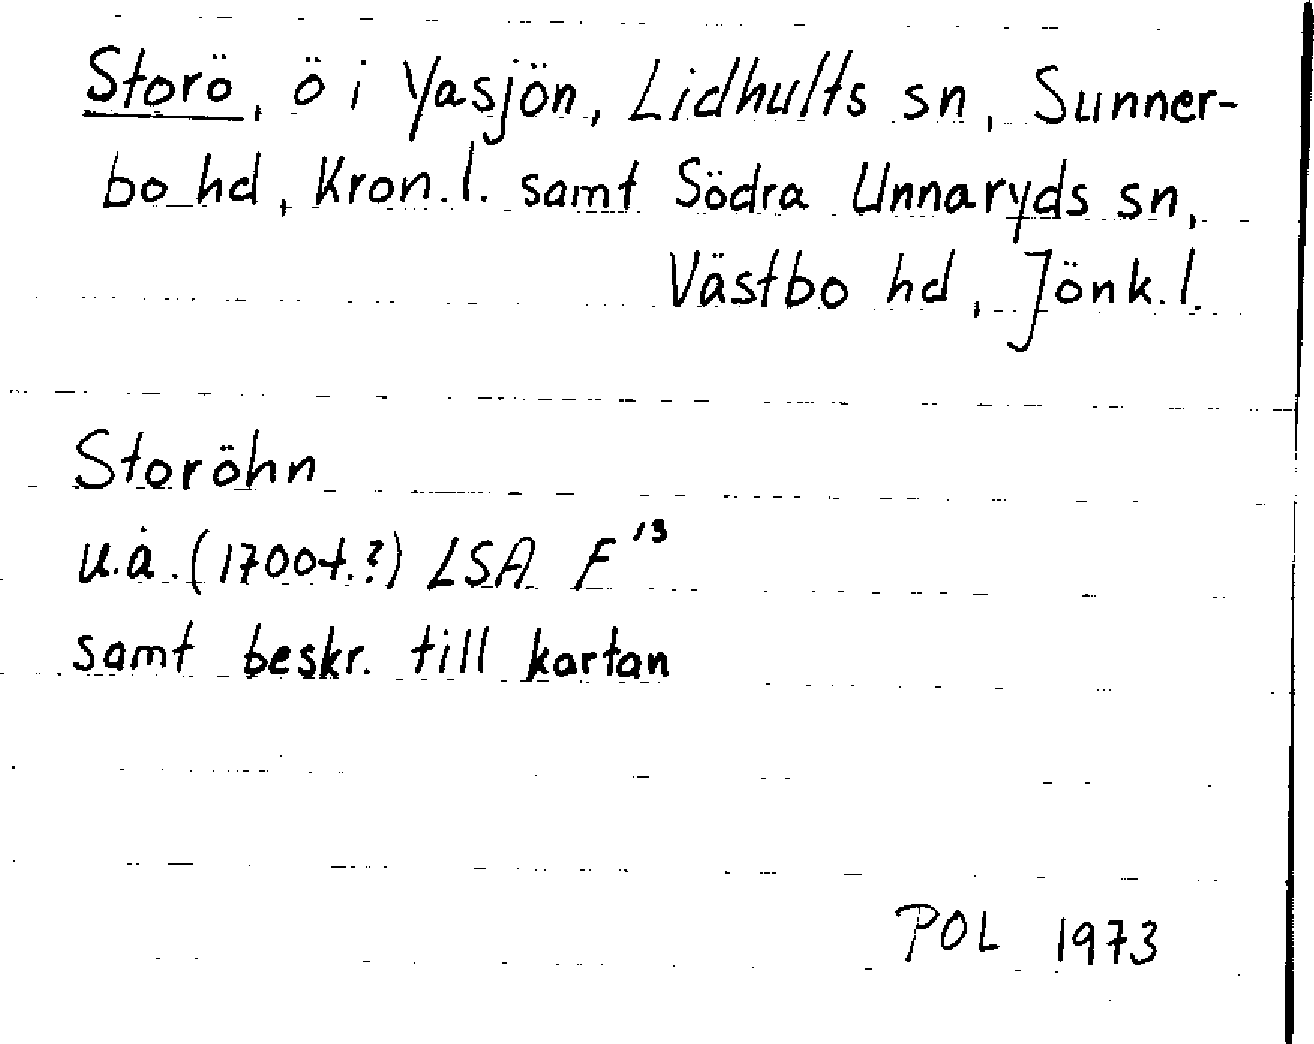 Storö, ö i Yasjön, Lidhults sn, Sunner-
bo hd, Kron. l. samt Södra Unnaryds sn,
Västbo hd, Jönk. l.
Storöhn
u.å. (1700t.?) LSA F¹³
samt beskr. till kartan
POL 1973